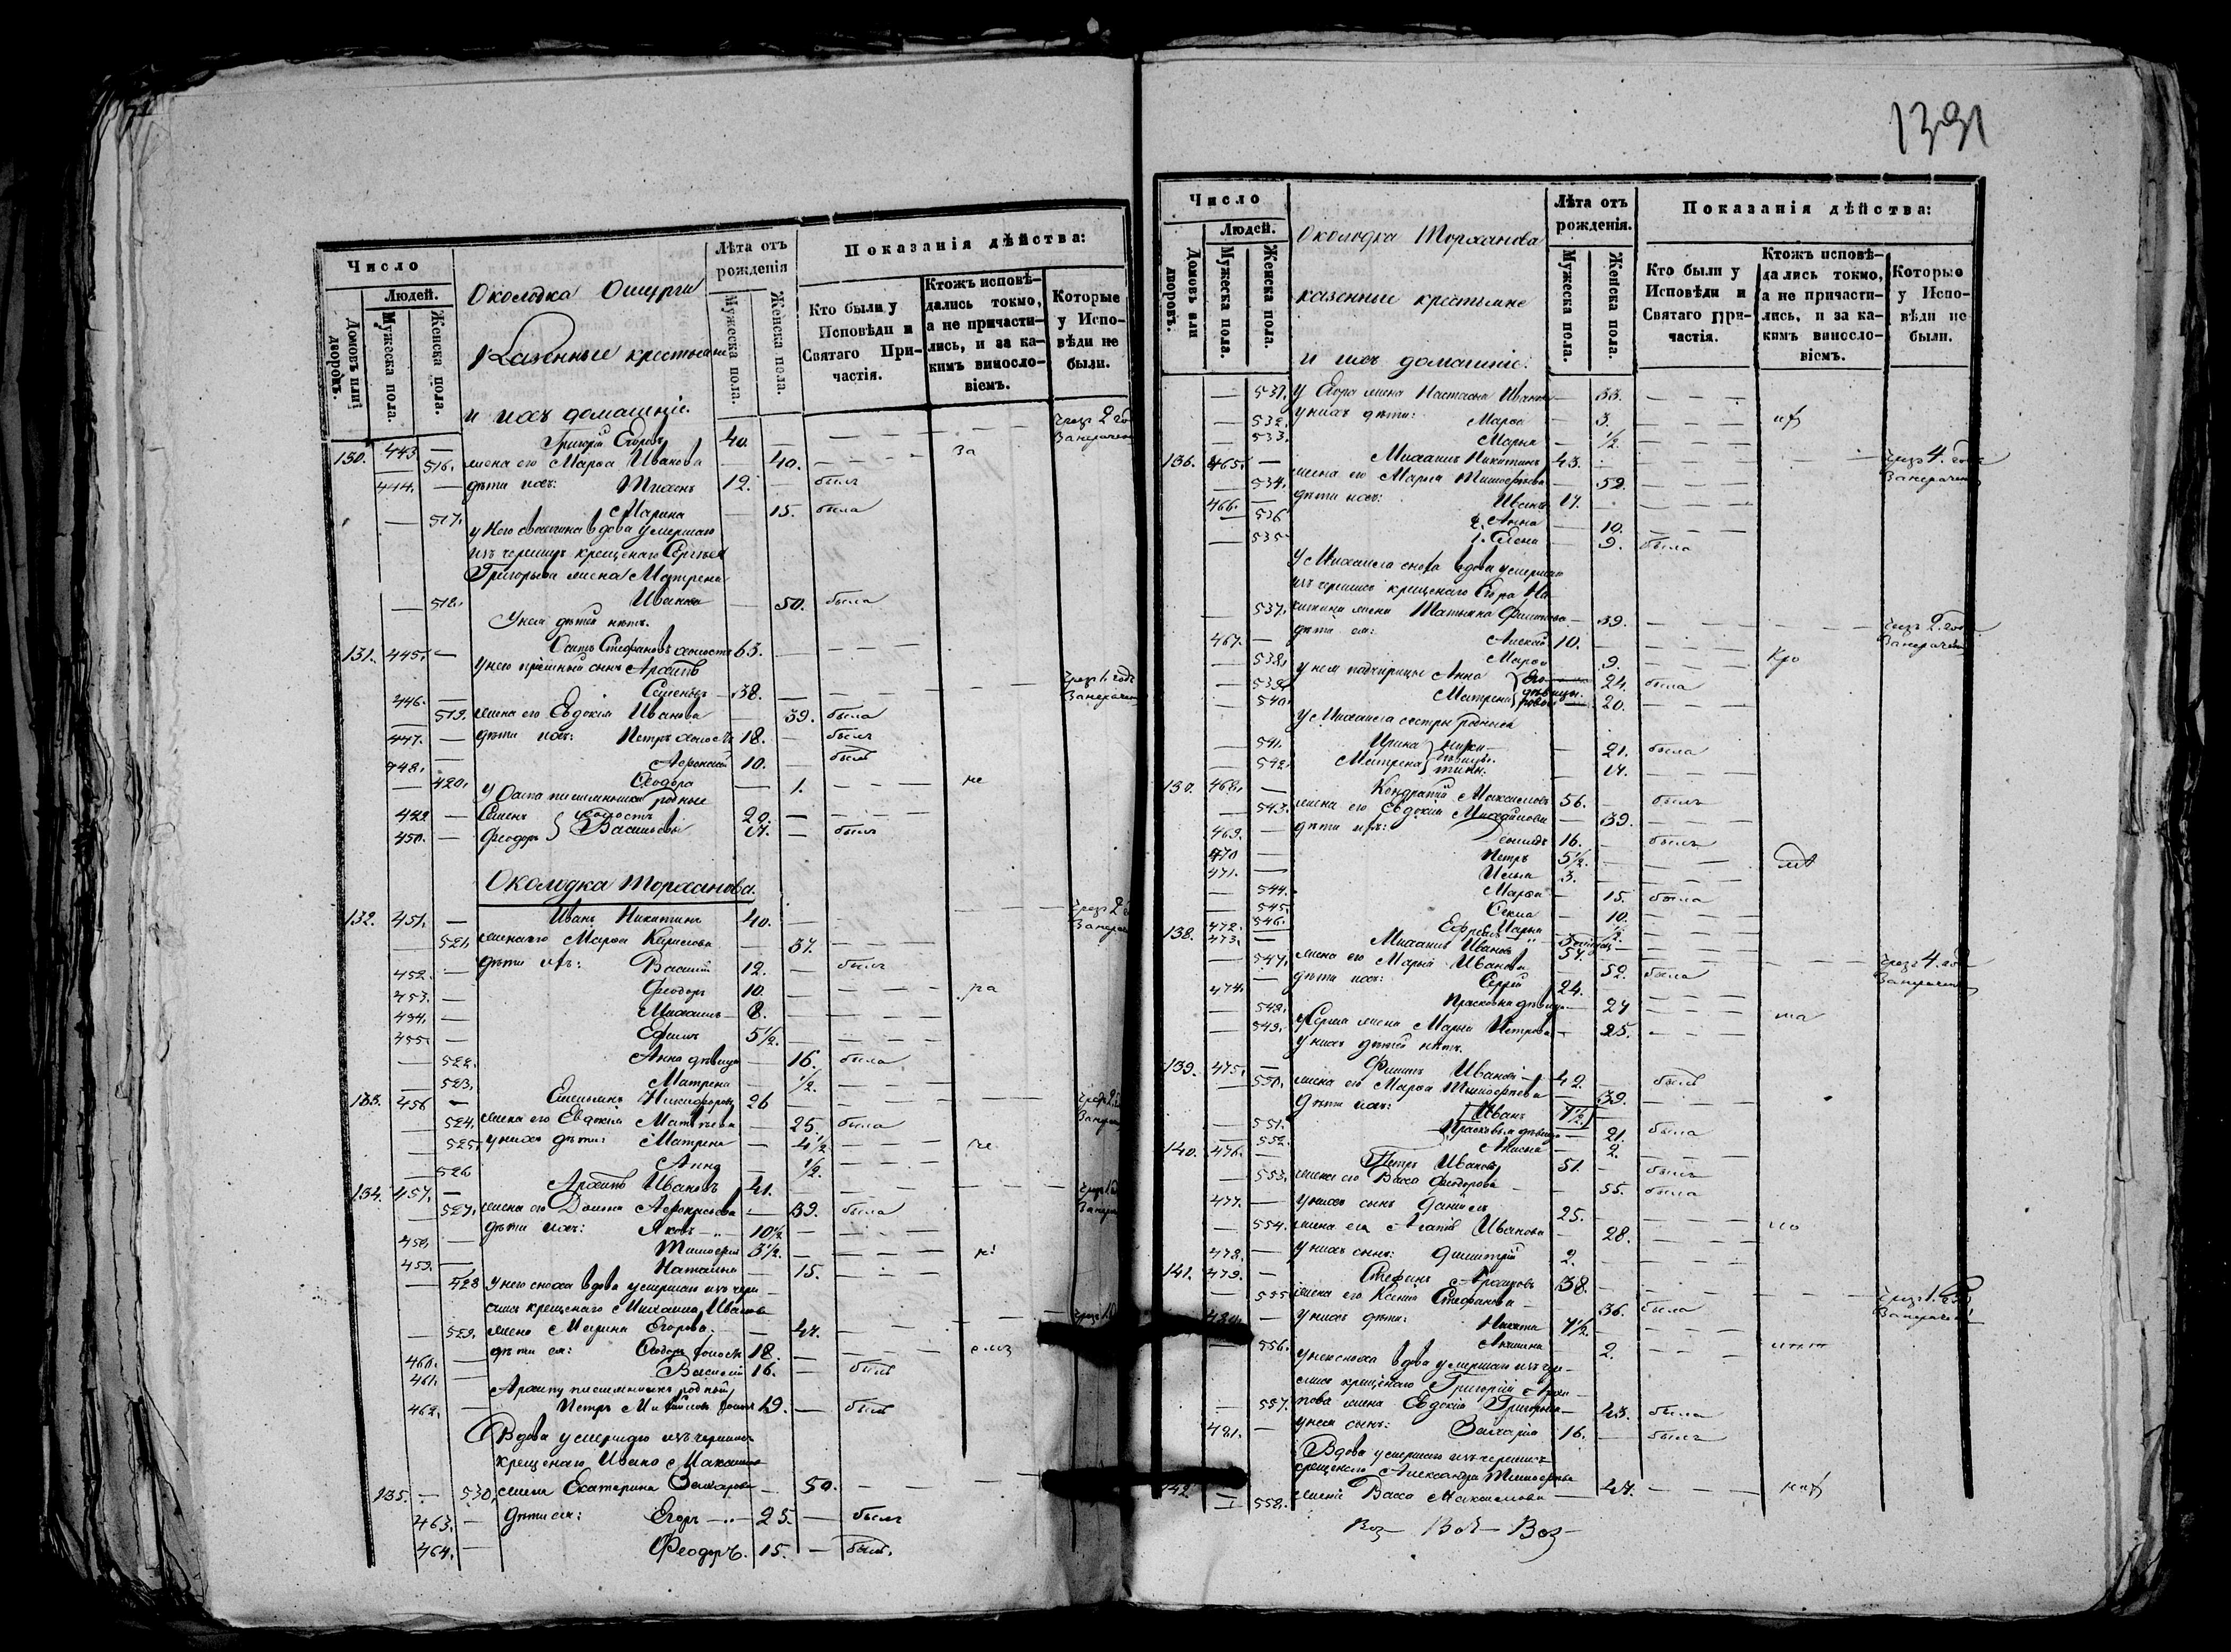 Число
Людей.
Домовъ или дворовъ.
Мужеска пола.
Женска пола.
Околодка Ошурги
Казенные крестьяне
и ихъ домашніе.
Лѣта отъ рожденія
Мужеска пола.
Женска пола.
Показанія дѣйства:
Кто были у Исповѣди и Святаго Причастія.
Ктожъ исповѣдались токмо, а не причастились, и за какимъ винословіемъ.
Которые у Исповѣди не были.
130. 443 — Григорій Егоровъ 40.
— 516. жена его Марѳа Иванова — 40. за
444. — дѣти ихъ: Тихонъ 12. — былъ
— 517. Марина — 15. была
у Него вдова умершаго
изъ черемисъ крещенаго Сергѣя
Григорьева жена Матрена
— 518. Иванова — 50. была
У нея дѣтей нѣтъ.
131. 445. — Осипъ Стефановъ холостъ 63.
у него пріемный сынъ Архипъ
446. — Семеновъ 38.
— 519. жена его Евдокія Иванова — 39. была
447. — дѣти ихъ: Петръ холостъ 18. — былъ
448. — Аѳонасій 10. — былъ
— 420. Ѳеодора — 1. не
у Осипа племянники родные
449 — Семенъ холостъ 20. —
450. — Ѳеодоръ Васильевы 17. — былъ
Околодка Торханова.
132. 451. — Иванъ Никитинъ 40.
— 521. жена его Марѳа Кирилова — 37.
452. — дѣти ихъ: Василій 12. — былъ
453. — Ѳеодоръ 10. ра
454. — Михаилъ 8.
455. — Ефимъ 5½.
— 522. Анна дѣвица — 16. была
— 523. Матрена — ½.
133. 456 — Емельянъ Никифоровъ 26
— 524. жена его Евдокія Матвѣева — 25. была
— 525. у нихъ дѣти: Матрена — 4½ че
— 526 Анна — ½.
134. 457. — Архипъ Ивановъ 41.
— 527. жена его Домна — 39. была
458. — дѣти ихъ: Яковъ 10½
459. — Тимоѳей 3½. ні
— 528 Наталья — 15.
у него сноха вдова умершаго изъ чере-
мисъ крещенаго Михаила Иванова
— 529. жена Марина Егорова. — 47.
460. — дѣти ея: Ѳеодоръ холостъ 18.
461. — Василій 16. — былъ
Архипу племянникъ родный
462. — Петръ Михайловъ холостъ 19. — былъ
Вдова умершаго изъ черемисъ
крещенаго Ивана Максимова
135. — 530. жена Екатерина Захарова — 50.
463. — Дѣти ея: Егоръ 25. — былъ
464. — Ѳеодоръ. 15. — былъ.
1391
Число
Людей.
Домовъ или дворовъ.
Мужеска пола.
Женска пола.
Околодка Торханова
казенные крестьяне
и ихъ домашніе.
Лѣта отъ рожденія.
Мужеска пола.
Женска пола.
Показанія дѣйства:
Кто были у Исповѣди и Святаго Причастія.
Ктожъ исповѣдались токмо, а не причастились, и за какимъ винословіемъ.
Которые у Исповѣди не были.
— 531. у Егора жена Настасья Иванова — 33.
— 532. у нихъ дѣти: Марѳа — 3.
— 533. Марья — ½.
136. 465. — Михаилъ Никитинъ 43. чрезъ 4. года
— 534. жена его Марья Тимоѳеева — 52.
466. — дѣти ихъ: Иванъ 17.
— 536 2. Анна — 10.
— 535 1. Елена — 9. была
У Михаила сноха вдова умершаго
изъ черемисъ крещенаго Егора Ни-
— 537. китина жена Татьяна Филипова — 39. чрезъ 2. года
467. — дѣти ея: Алексѣй 10.
— 538. Марѳа 9. кро
— 539. у нея падчерицы Анна 24. была
— 540. Матрена дѣвицы. — 20.
У Михаила сестры родныя
— 541. Ирина Ники- — 21. была
— 542. Матрена дѣвицы тины. — 17.
137. 468. — Кондратій Максимовъ 56. былъ
— 543. жена его Евдокія Михайлова — 39.
469. — дѣти ихъ: Леонидъ 16. былъ
470 — Петръ 5½.
471. — Илья 3.
— 544. Марѳа — 15. была
— 545. Секла — 10.
— 546. Марья ½.
472. — Ефремъ
138. 473. — Михаилъ Ивановъ 57. чрезъ 4. года
— 547. жена его Марья Иванова — 52. была
474. — дѣти ихъ: Сергій 24.
— 548. Прасковья дѣвица — 27 та
— 549. у Сергія жена Марья Петрова — 25.
У нихъ дѣтей нѣтъ.
139. 475. — Филипъ Ивановъ 42. былъ
— 550. жена его Марѳа Тимоѳеева — 39.
Дѣти ихъ: Иванъ 7½.
— 551. Прасковья дѣвица — 21. была
— 552. Анисья — 2.
140. 476. — Петръ Ивановъ 51. — былъ
— 553. жена его Васса Ѳеодорова — 55. была
477. — у нихъ сынъ Даніилъ 25.
— 554. жена его Агаѳія Иванова — 28.
478. — у нихъ сынъ: Димитрій 2.
141. 479. — Стефанъ Архиповъ 38. чрезъ 1. годъ
— 555 жена его Ксенія Стефанова — 36. была
480. — у нихъ дѣти: Никита 7½.
— 556. Акилина 2.
у нихъ сноха вдова умершаго изъ чере-
мисъ крещенаго Григорія Архи-
— 557. пова жена Евдокія Григорьева — 43. была
481. — у нея сынъ: Захарія 16. — былъ
Вдова умершаго изъ черемисъ
крещенаго Александра Тимоѳеева
142. — 558. жена Васса Максимова — 47.